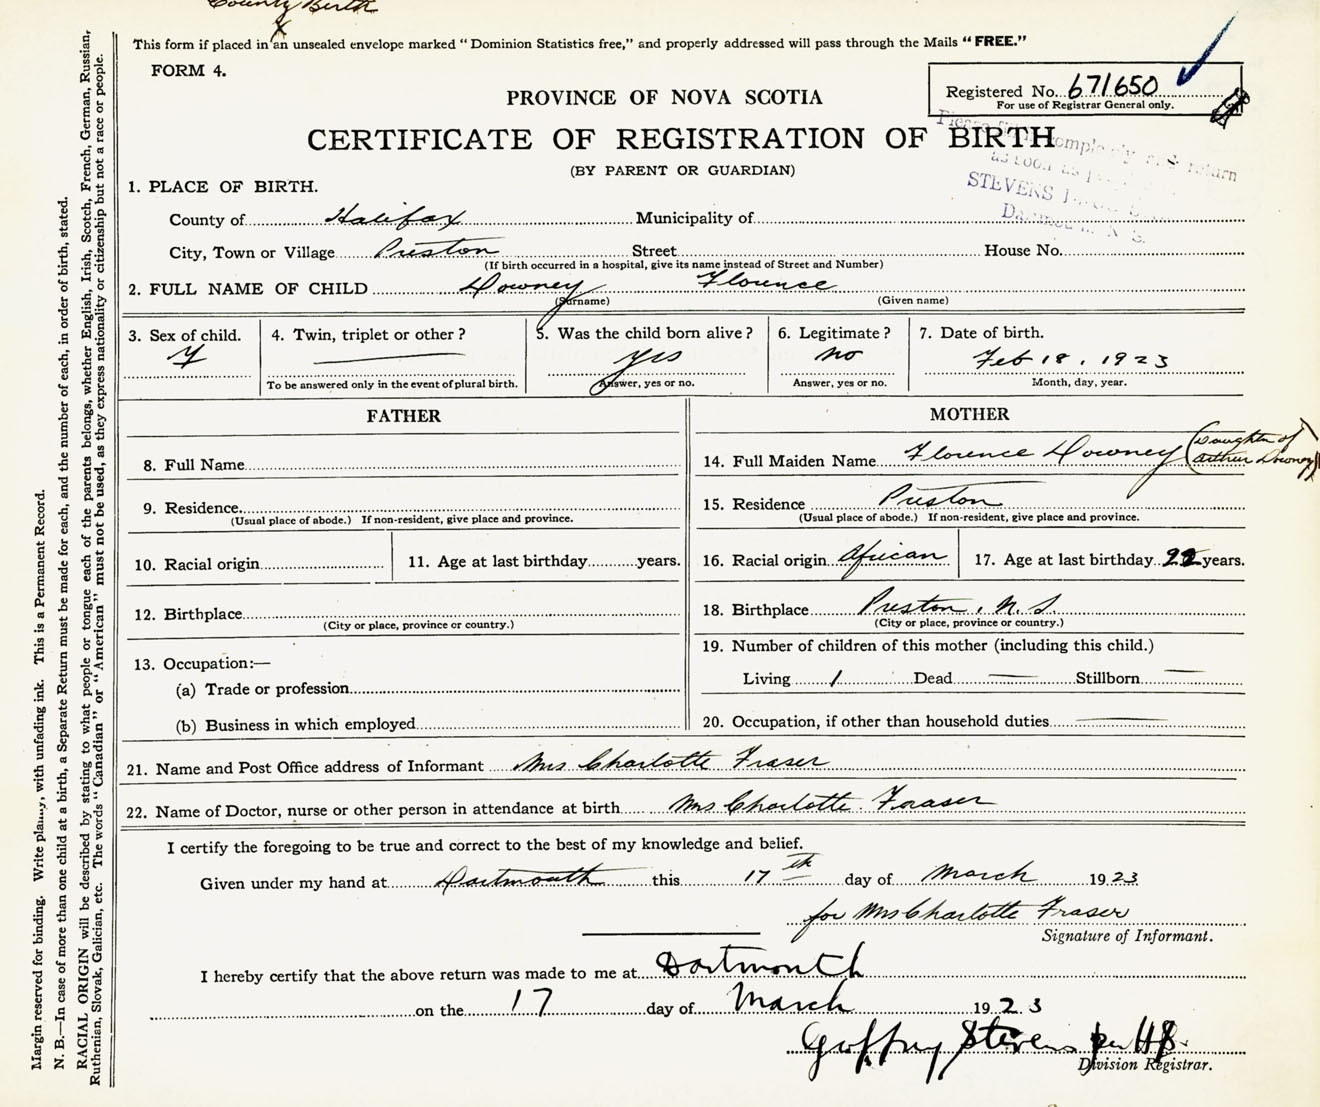 County Birth
x
This form if placed in an unsealed envelope marked “Dominion Statistics free,” and properly addressed will pass through the Mails “FREE.”
FORM 4.
Registered No. 671650
For use of Registrar General only.
PROVINCE OF NOVA SCOTIA
CERTIFICATE OF REGISTRATION OF BIRTH
(BY PARENT OR GUARDIAN)
Please fill in completely and return
as soon as
STEVENS
N. S.
1. PLACE OF BIRTH.
County of Halifax Municipality of
City, Town or Village Preston Street House No.
(If birth occurred in a hospital, give its name instead of Street and Number)
2. FULL NAME OF CHILD Downey Florence
(Surname) (Given name)
3. Sex of child. 4. Twin, triplet or other? 5. Was the child born alive? 6. Legitimate? 7. Date of birth.
F yes no Feb 18, 1923
To be answered only in the event of plural birth. Answer, yes or no. Answer, yes or no. Month, day, year.
FATHER
8. Full Name
9. Residence.
(Usual place of abode.) If non-resident, give place and province.
10. Racial origin 11. Age at last birthday years.
12. Birthplace
(City or place, province or country.)
13. Occupation:—
(a) Trade or profession
(b) Business in which employed
MOTHER
14. Full Maiden Name Florence Downey (Daughter of
Arthur Downey)
15. Residence Preston
(Usual place of abode.) If non-resident, give place and province.
16. Racial origin African 17. Age at last birthday 22 years.
18. Birthplace Preston, N. S.
(City or place, province or country.)
19. Number of children of this mother (including this child.)
Living 1 Dead — Stillborn —
20. Occupation, if other than household duties —
21. Name and Post Office address of Informant Mrs Charlotte Fraser
22. Name of Doctor, nurse or other person in attendance at birth Mrs Charlotte Fraser
I certify the foregoing to be true and correct to the best of my knowledge and belief.
Given under my hand at Dartmouth this 17th day of March 1923
for Mrs Charlotte Fraser
Signature of Informant.
I hereby certify that the above return was made to me at Dartmouth
on the 17 day of March 1923
Geoffrey Stevens per HS
Division Registrar.
Margin reserved for binding. Write plainly, with unfading ink. This is a Permanent Record.
N. B.—In case of more than one child at a birth, a Separate Return must be made for each, and the number of each, in order of birth, stated.
RACIAL ORIGIN will be described by stating to what people or tongue each of the parents belongs, whether English, Irish, Scotch, French, German, Russian,
Ruthenian, Slovak, Galician, etc. The words “Canadian” or “American” must not be used, as they express nationality or citizenship but not a race or people.